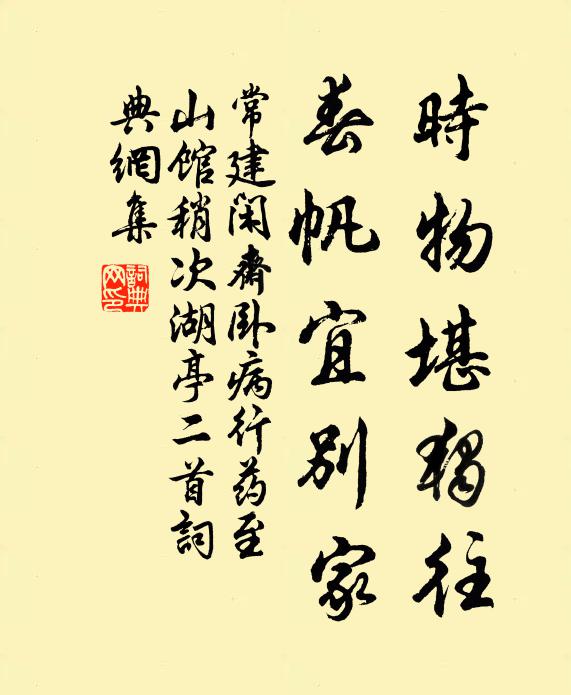 時物堪獨往
春帆宜別家
常建閑齋臥病行药至
山館稍次湖亭二首詞
典網集
詞典
网印